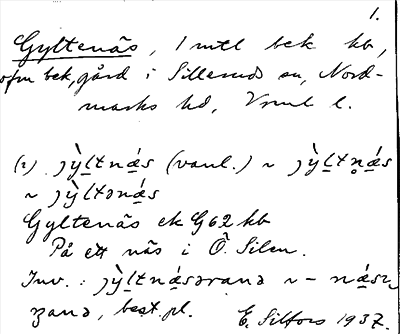 1.
Gyltenäs, 1 mtl bek kb,
ofm bek, gård i Silleruds sn, Nord-
marks hd, Vrml l.
(1) jỳltnás (vanl.) ~ jỳltnás
~ jỳltənás
Gyltenäs ek G62 kb
På ett näs i Ö. Silen.
Inv.: jỳltnásərana ~ - nás
best. pl. E. Silfors 1937.